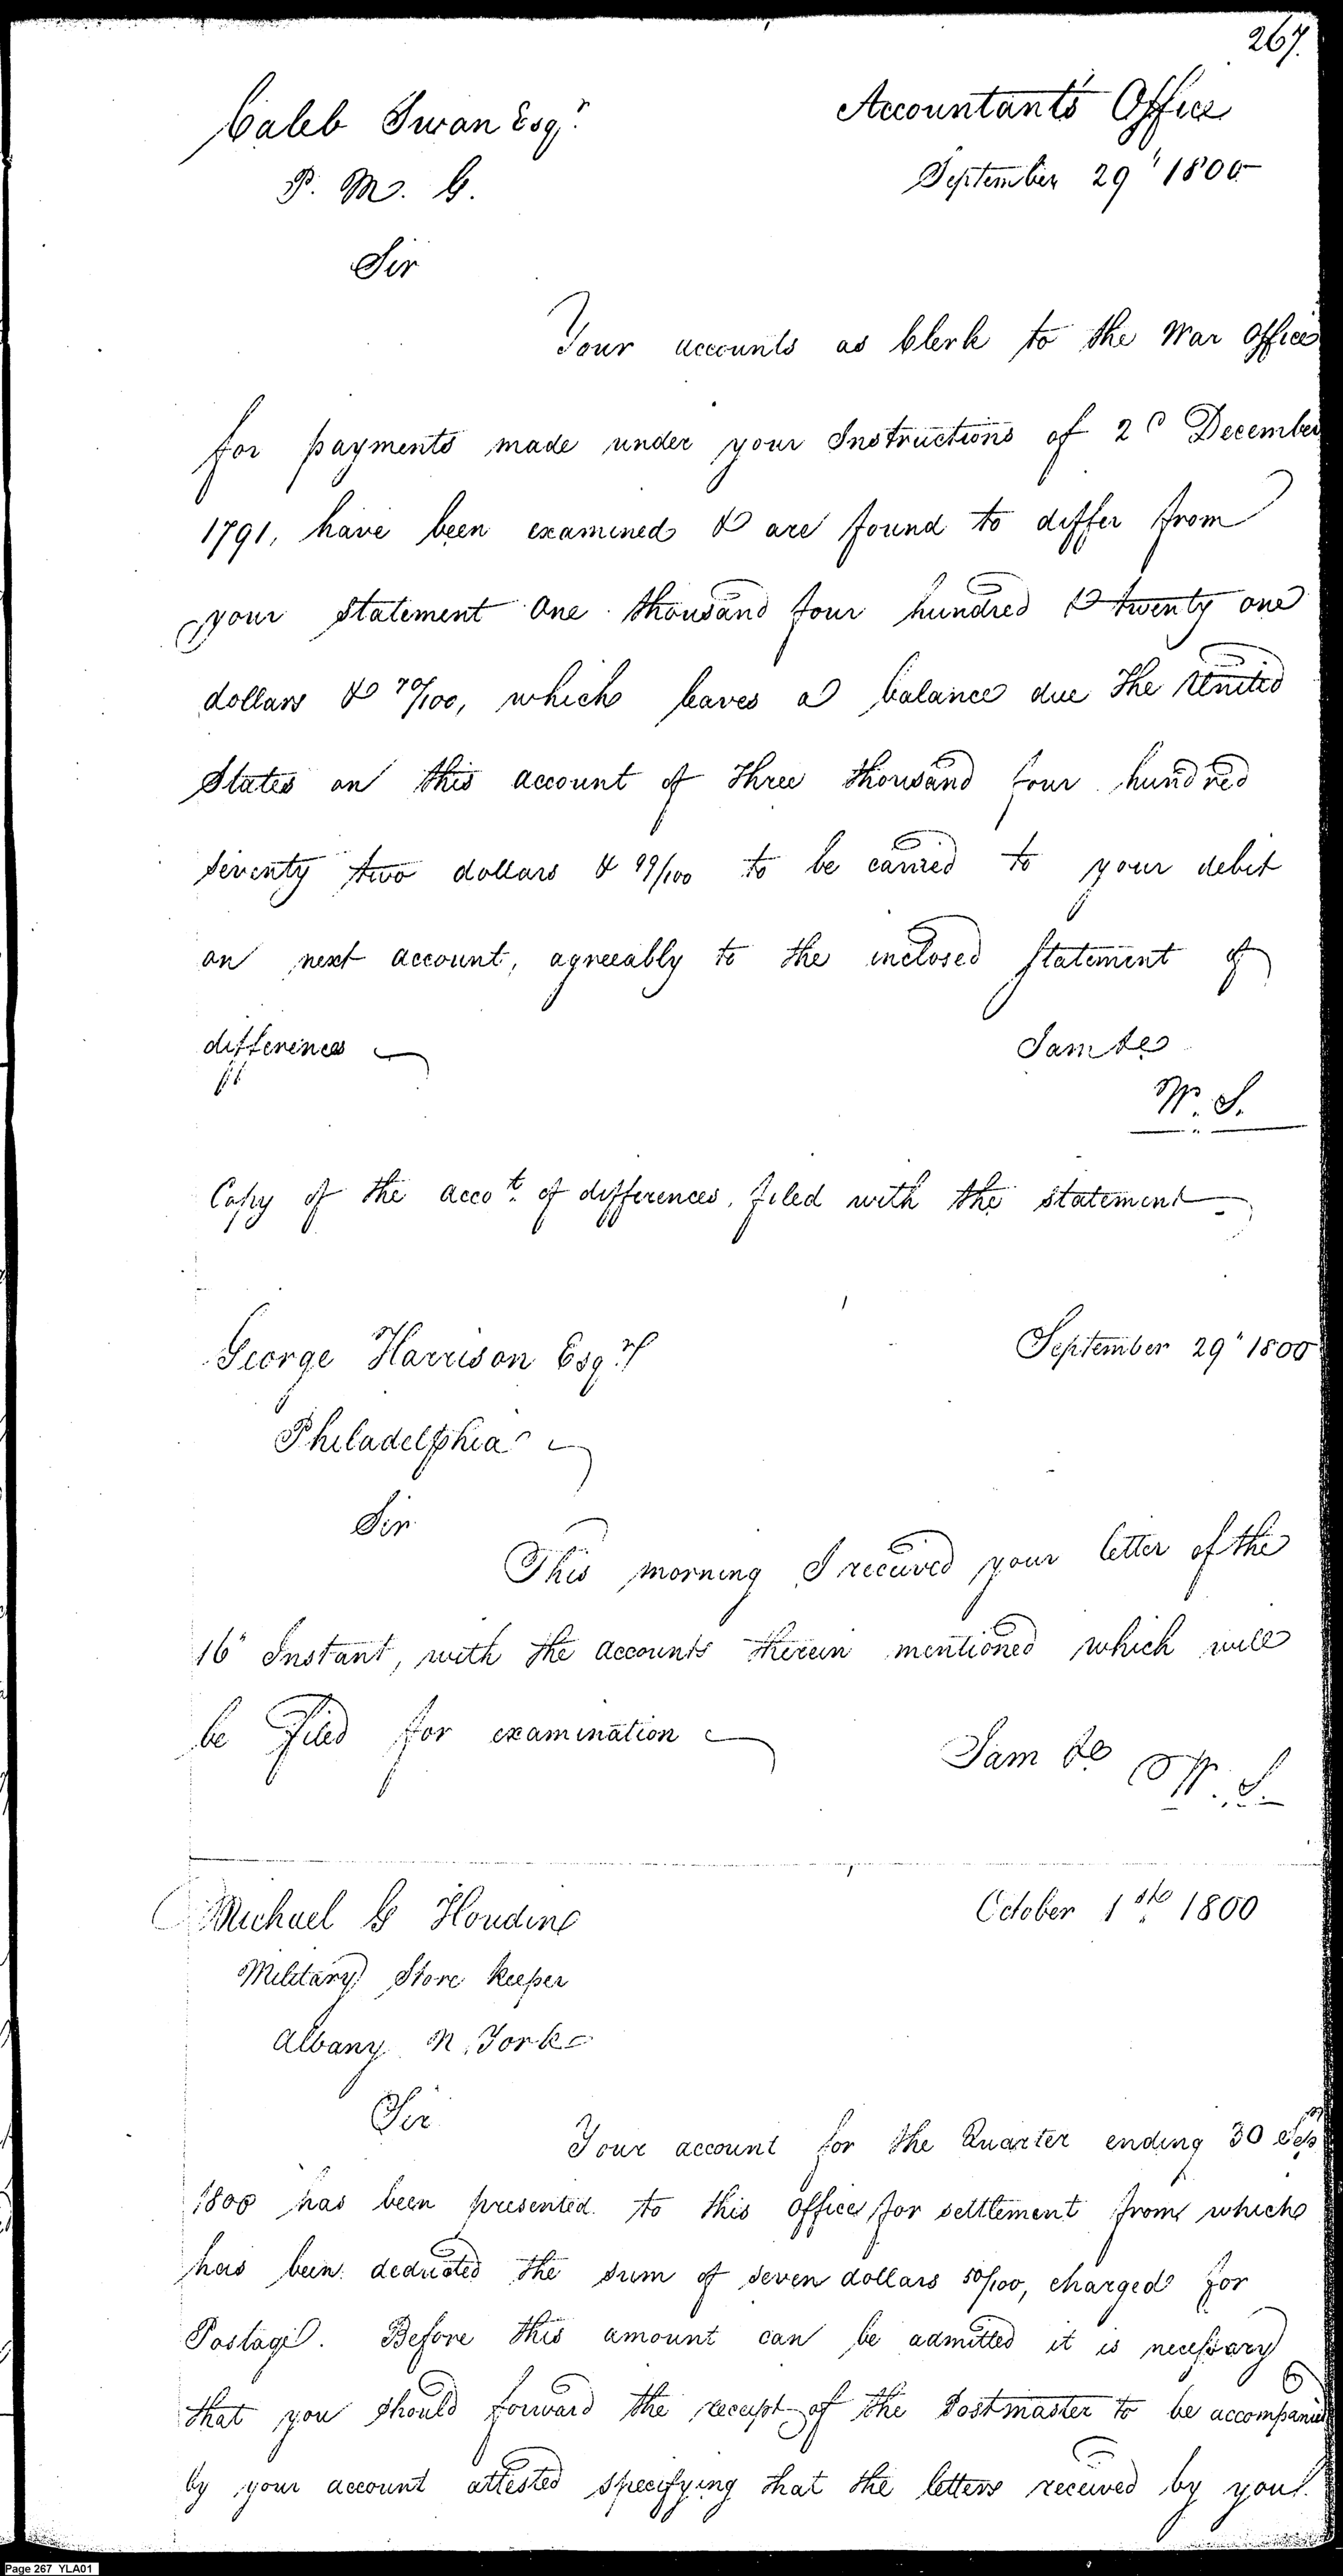 267.
Caleb Swan Esqr.
Accountant's Office
P. M. G.
September 29" 1800
Sir
Your accounts as Clerk to the War Office
for payments made under your Instructions of 2d December
1791, have been examined & are found to differ from
your statement One thousand four hundred & twenty one
dollars & 70/100, which leaves a balance due The United
States on this account of Three thousand four hundred
seventy two dollars & 99/100 to be carried to your debit
on next account, agreeably to the inclosed Statement of
differences
I am &c
W. S.
Copy of the accot. of differences, filed with the statement
George Harrison Esqr.
September 29" 1800
Philadelphia
Sir
This morning I received your letter of the
16" Instant, with the accounts therein mentioned which will
be filed for examination
I am &c W. S.
Michael G Houdin
October 1st 1800
Military Store Keeper
Albany N. York
Sir
Your account for the Quarter ending 30 Sep
1800 has been presented to this office for settlement from which
has been deducted the sum of seven dollars 50/100, charged for
Postage. Before this amount can be admitted it is necessary
that you should forward the receipt of the Postmaster to be accompanied
by your account attested specifying that the letters received by you
Page 267 YLA01